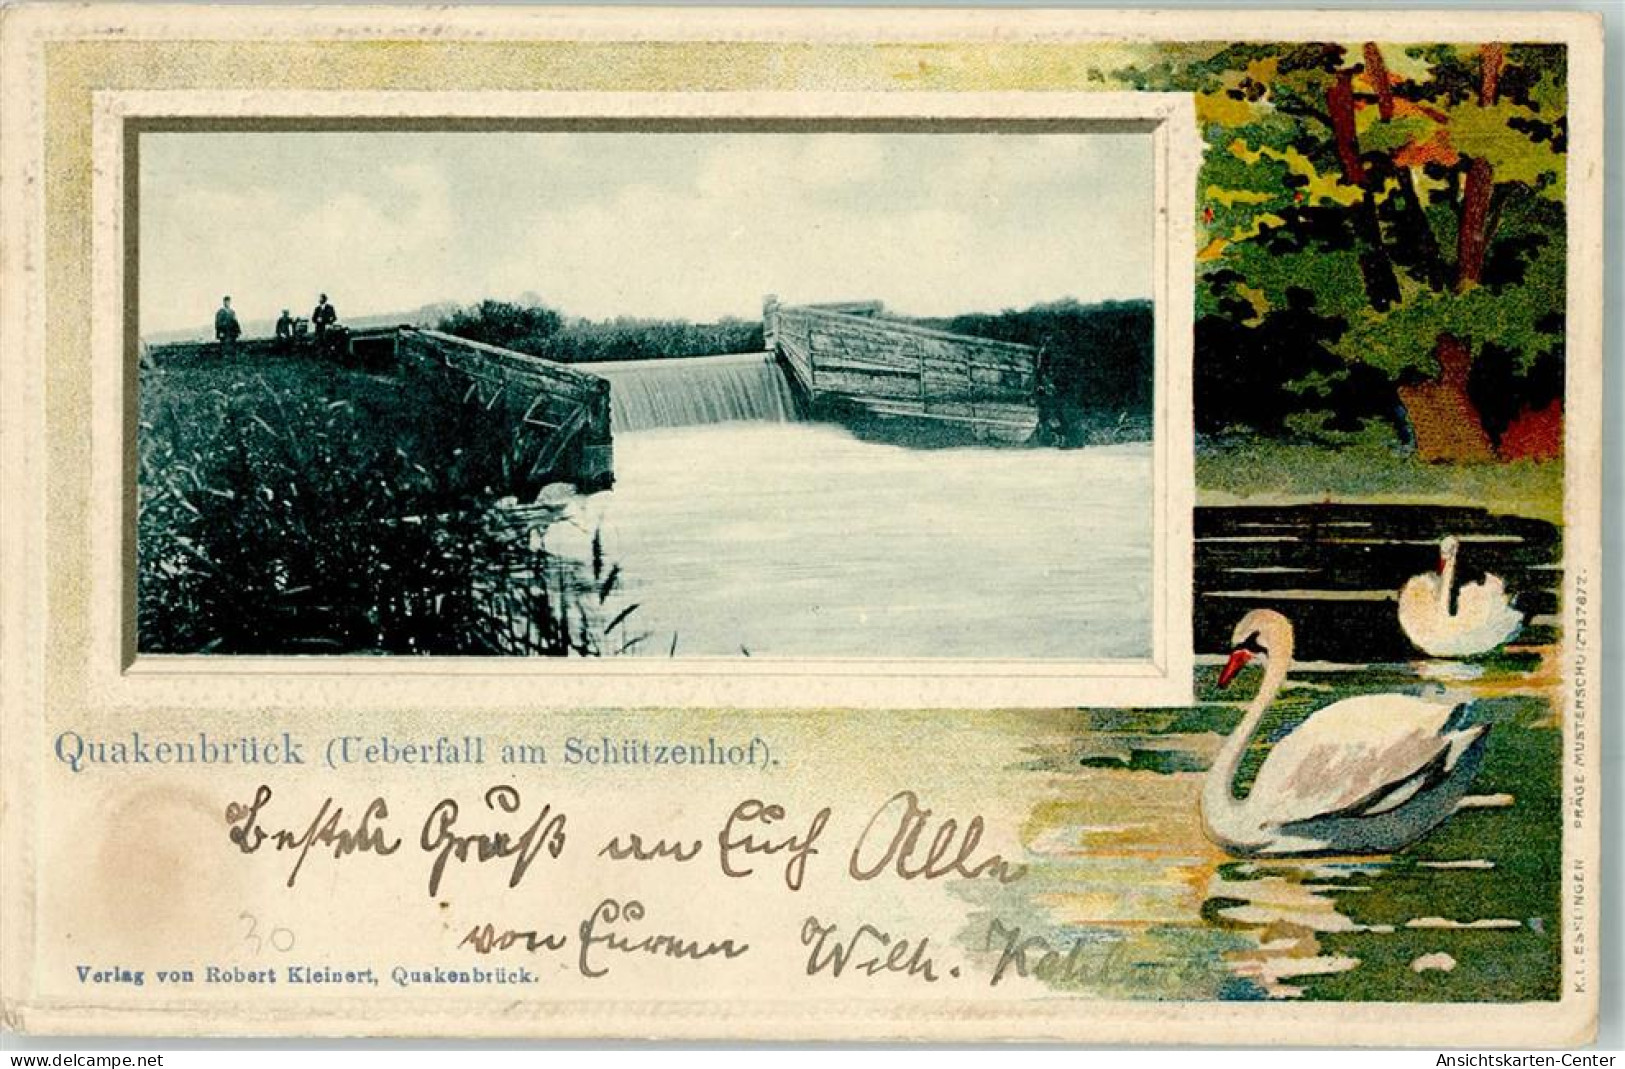 Quakenbrück (Ueberfall am Schützenhof).
Besten Gruß an Euch Alle
von Eurem Wilh.
30
Verlag von Robert Kleinert, Quakenbrück.
K.L. ESSLINGEN PRÄGE MUSTERSCHUTZ 137672.
delcampe.net
Ansichtskarten-Center